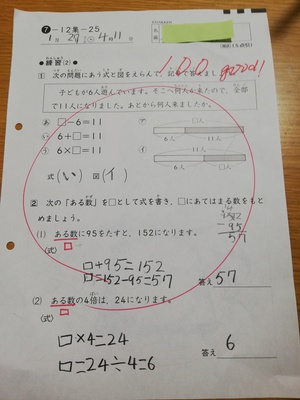 7-12集-25
1月29日 4時11分
●練習(2)●
100 good!
1 次の問題にあう式と図をえらんで、記号で答えましょう。
子どもが6人遊んでいます。そこへ何人か来たので、全部
で11人になりました。あとから何人来ましたか。
あ □-6=11
い 6+□=11
う 6×□=11
ア
6人 11人
イ
6人 □人
11人
式(い) 図(イ)
2 次の「ある数」を□として式を書き、□にあてはまる数をもと
めましょう。
(1) ある数に95をたすと、152になります。
(式)
□+95=152
□=152-95=57
152
-95
57
答え 57
(2) ある数の4倍は、24になります。
(式)
□×4=24
□=24÷4=6
答え 6